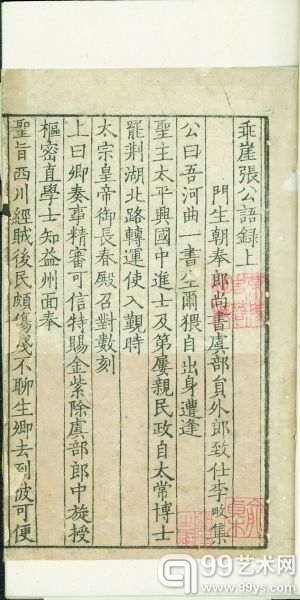 乖崖張公語録上
門生朝奉郎尚書虞部員外郎致仕李畋集
公曰吾河曲一書生爾猥自出身遭逢
聖主太平興國中進士及第屢親民政自太常博士
罷荆湖北路轉運使入觀時
太宗皇帝御長春殿召對數刻
上曰卿奏事精審可信特賜金紫除虞部郎中旋授
樞密直學士知益州面奉
聖旨西川經賊後民頗傷殘不聊生卿去到彼可便
99艺术网
www.99ys.com